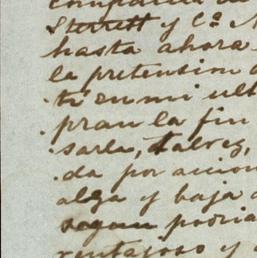 Sterrett y Cª
hasta ahora
la pretension
ti en mi ult
pran la fin
sarla, talvez,
da por accion
alza y baja
segun podria
ventajoso y